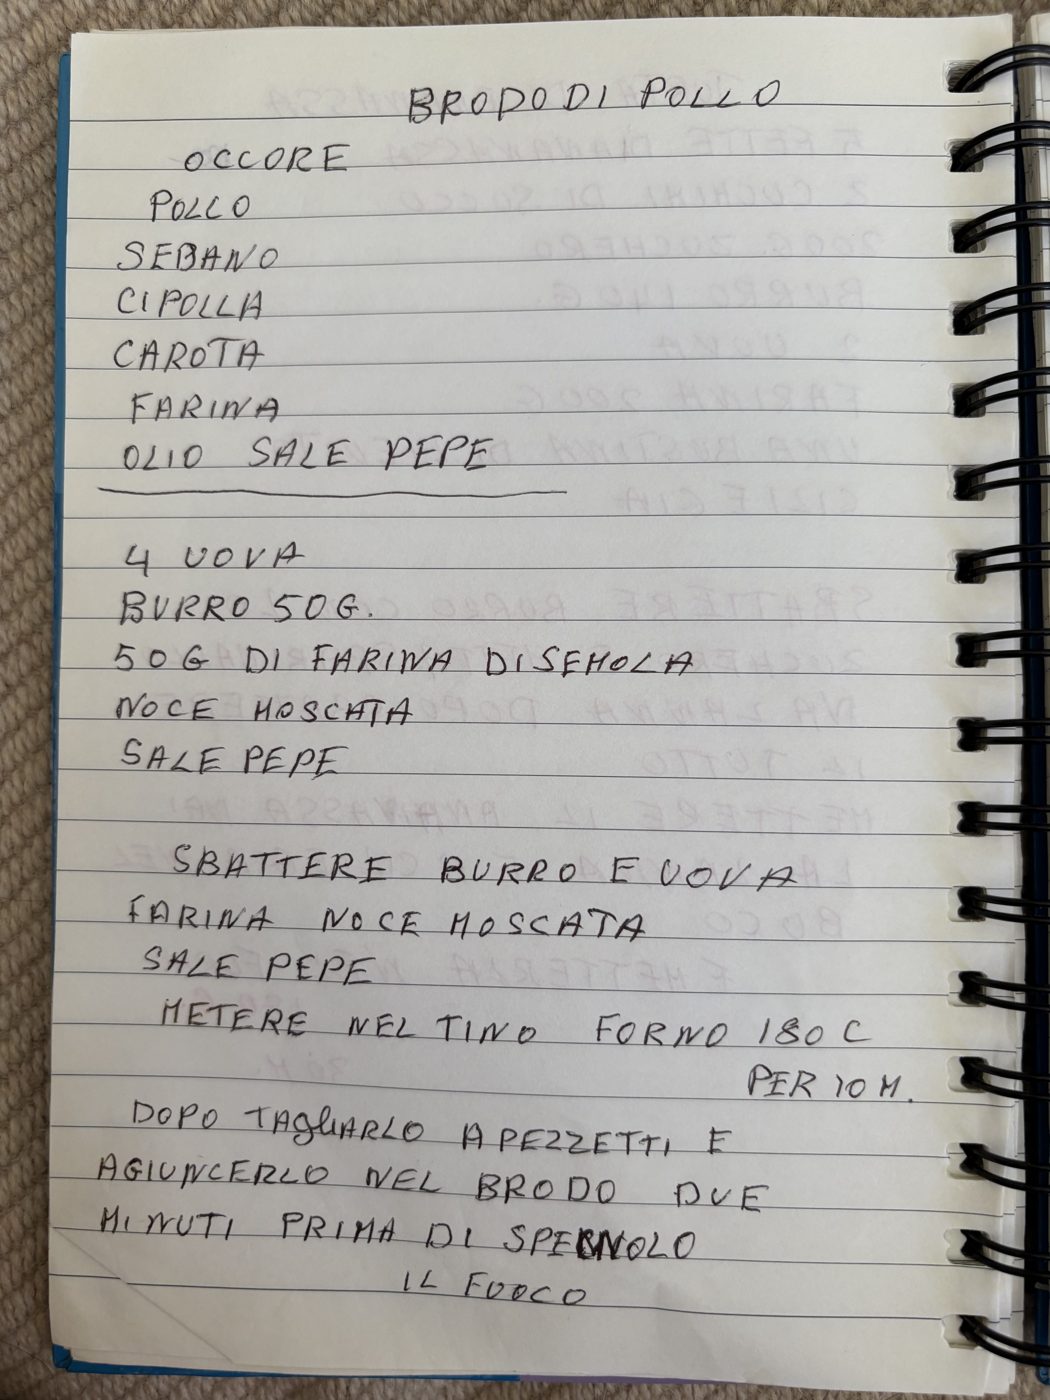 BRODO DI POLLO
OCCORE
POLLO
SEBANO
CIPOLLA
CAROTA
FARINA
OLIO SALE PEPE
4 UOVA
BURRO 50G.
50G DI FARINA DI SEMOLA
NOCE MOSCATA
SALE PEPE
SBATTERE BURRO E UOVA
FARINA NOCE MOSCATA
SALE PEPE
METERE NEL TINO FORNO 180 C
PER 10 M.
DOPO TAGLIARLO A PEZZETTI E
AGIUNCERLO NEL BRODO DUE
MINUTI PRIMA DI
IL FUOCO